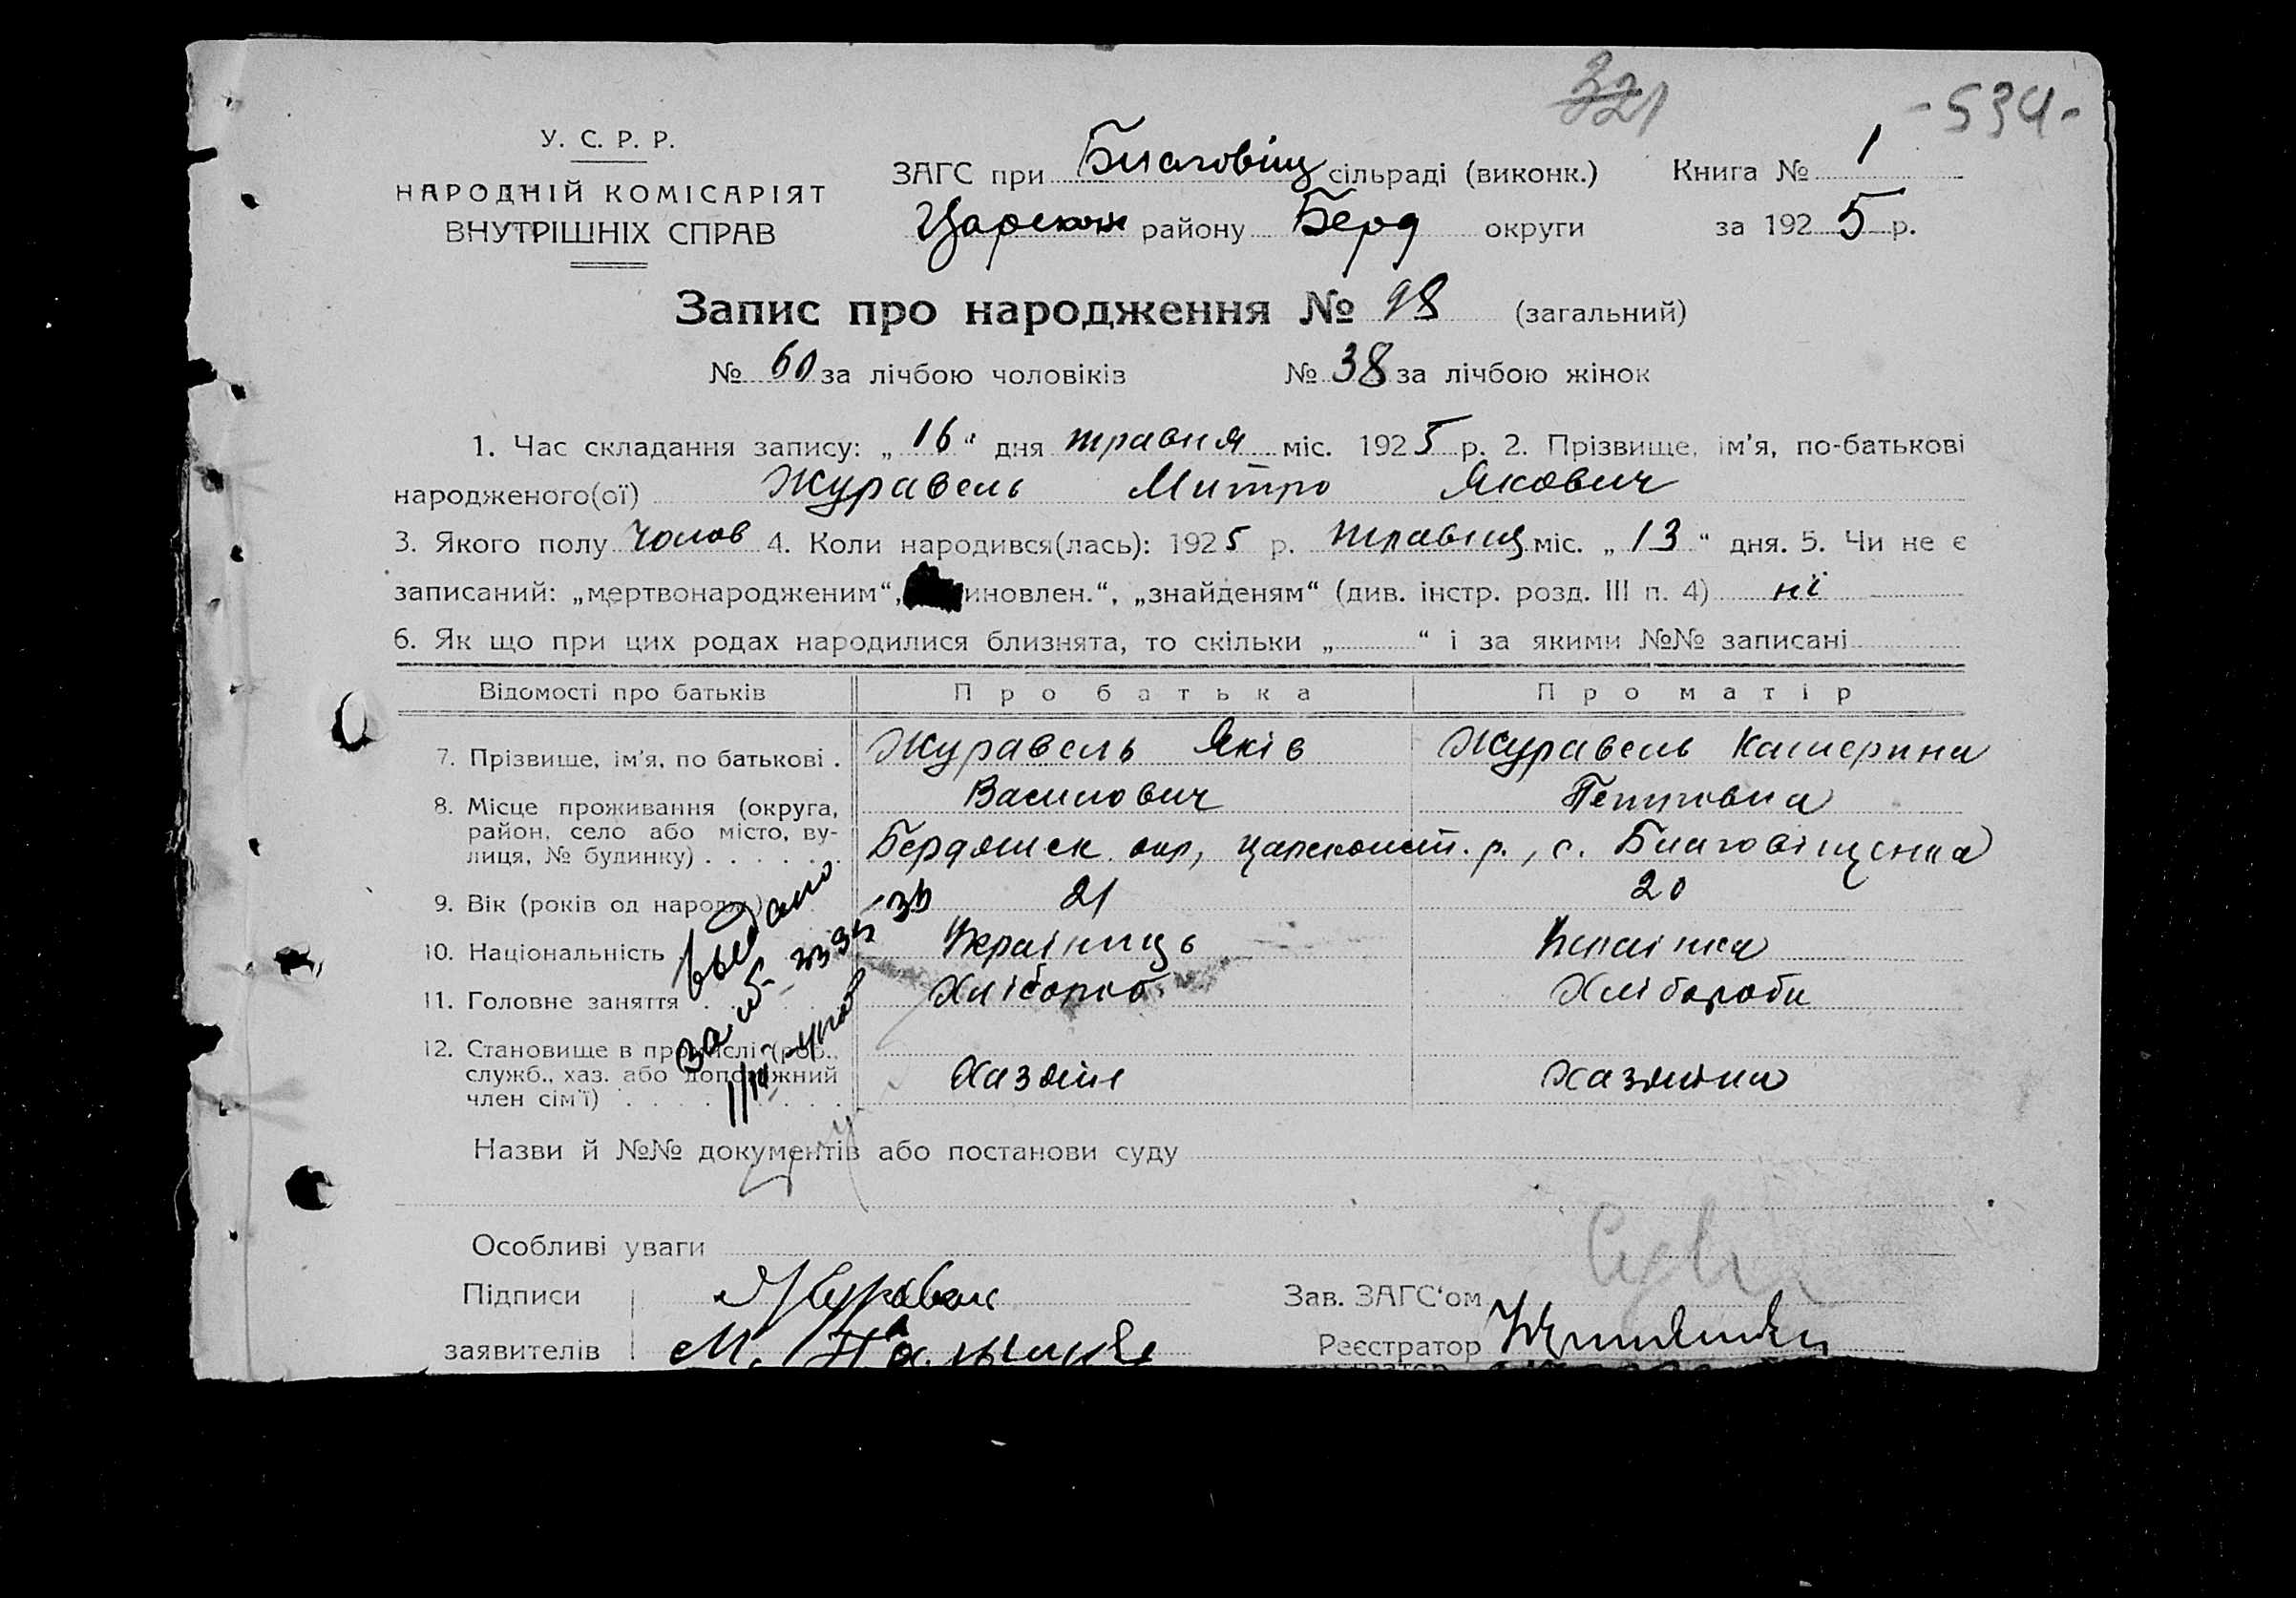 321
- 534 -
У. С. Р. Р.
НАРОДНІЙ КОМІСАРІЯТ
ВНУТРІШНІХ СПРАВ
ЗАГС при Благовіщ сільраді (виконк.) Книга № 1
Царскон району Берд округи за 1925 р.
Запис про народження № 98 (загальний)
№ 60 за лічбою чоловіків № 38 за лічбою жінок
1. Час складання запису: „16“ дня травня міс. 1925 р. 2. Прізвище, ім'я, по-батькові
народженого(ої) Журавель Митро Якович
3. Якого полу Чолов 4. Коли народився(лась): 1925 р. травня міс. „13“ дня. 5. Чи не є
записаний: „мертвонародженим“, иновлен.“, „знайденям“ (див. інстр. розд. III п. 4) ні
6. Як що при цих родах народилися близнята, то скільки „ “ і за якими №№ записані
Відомості про батьків Про батька Про матір
7. Прізвище, ім'я, по батькові . Журавель Яків Василович Журавель Катерина Петровна
8. Місце проживання (округа,
район, село або місто, ву-
лиця, № будинку) . . . . . . Бердянск окр, царсконст. р., с. Благовіщенка
9. Вік (років од народж.) 21 20
10. Національність Українець Українка
11. Головне заняття Хлібороб Хлібороби
12. Становище в промислі (роб.,
служб., хаз. або допоміжний
член сім'ї) Хазяїн хазяїна
выдано
Назви й №№ документів або постанови суду
Особливі уваги
Підписи Журавель Зав. ЗАГС'ом
заявителів М. Реєстратор